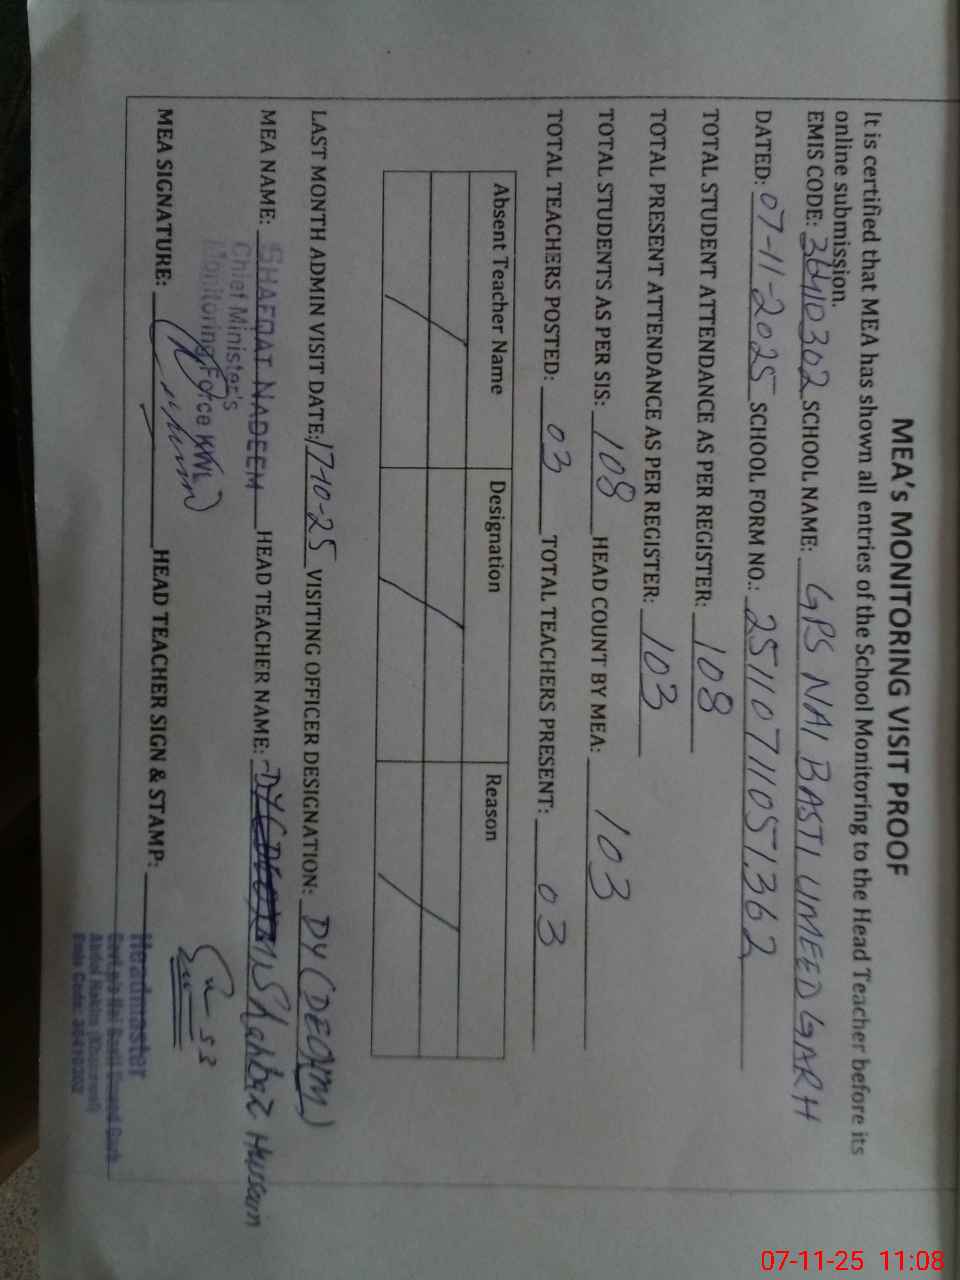 MEA's MONITORING VISIT PROOF
It is certified that MEA has shown all entries of the School Monitoring to the Head Teacher before its
online submission.
EMIS CODE: 36410302 SCHOOL NAME: GPS NAI BASTI UMEED GARH
DATED: 07-11-2025 SCHOOL FORM NO.: 25110711051362
TOTAL STUDENT ATTENDANCE AS PER REGISTER: 108
TOTAL PRESENT ATTENDANCE AS PER REGISTER: 103
TOTAL STUDENTS AS PER SIS: 108 HEAD COUNT BY MEA: 103
TOTAL TEACHERS POSTED: 03 TOTAL TEACHERS PRESENT: 03
Absent Teacher Name Designation Reason
LAST MONTH ADMIN VISIT DATE: 17-10-25 VISITING OFFICER DESIGNATION: DY (DEOAM)
MEA NAME: SHAFQAT NADEEM HEAD TEACHER NAME: Shahbaz Hussain
Chief Minister's
Monitoring Force KWL
MEA SIGNATURE: HEAD TEACHER SIGN & STAMP:
Headmaster
07-11-25 11:08